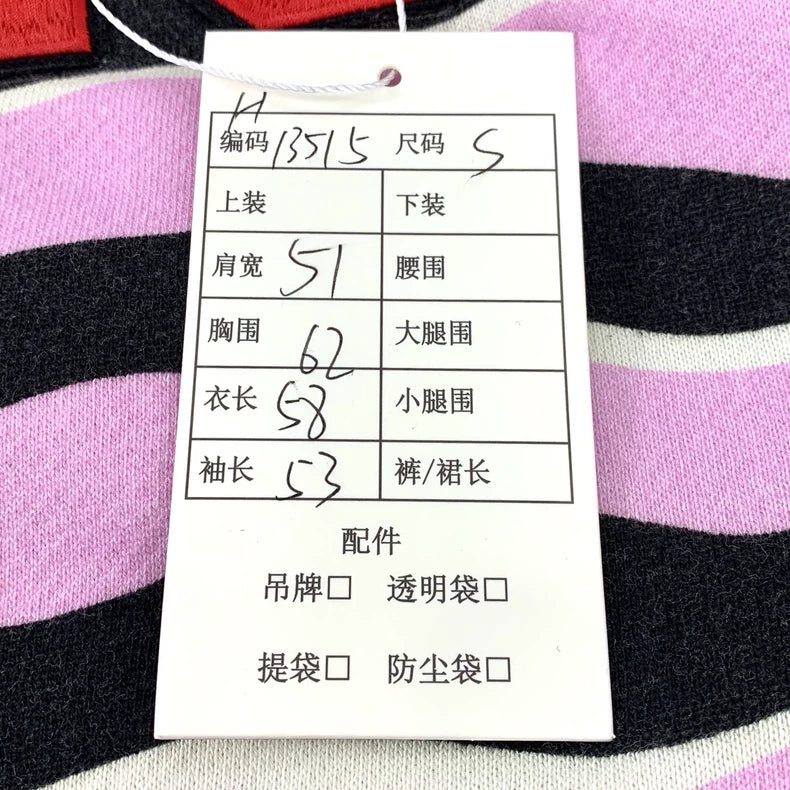 H
编码 13515 尺码 S
上装 下装
肩宽 51 腰围
胸围 62 大腿围
衣长 58 小腿围
袖长 53 裤/裙长
配件
吊牌□ 透明袋□
提袋□ 防尘袋□